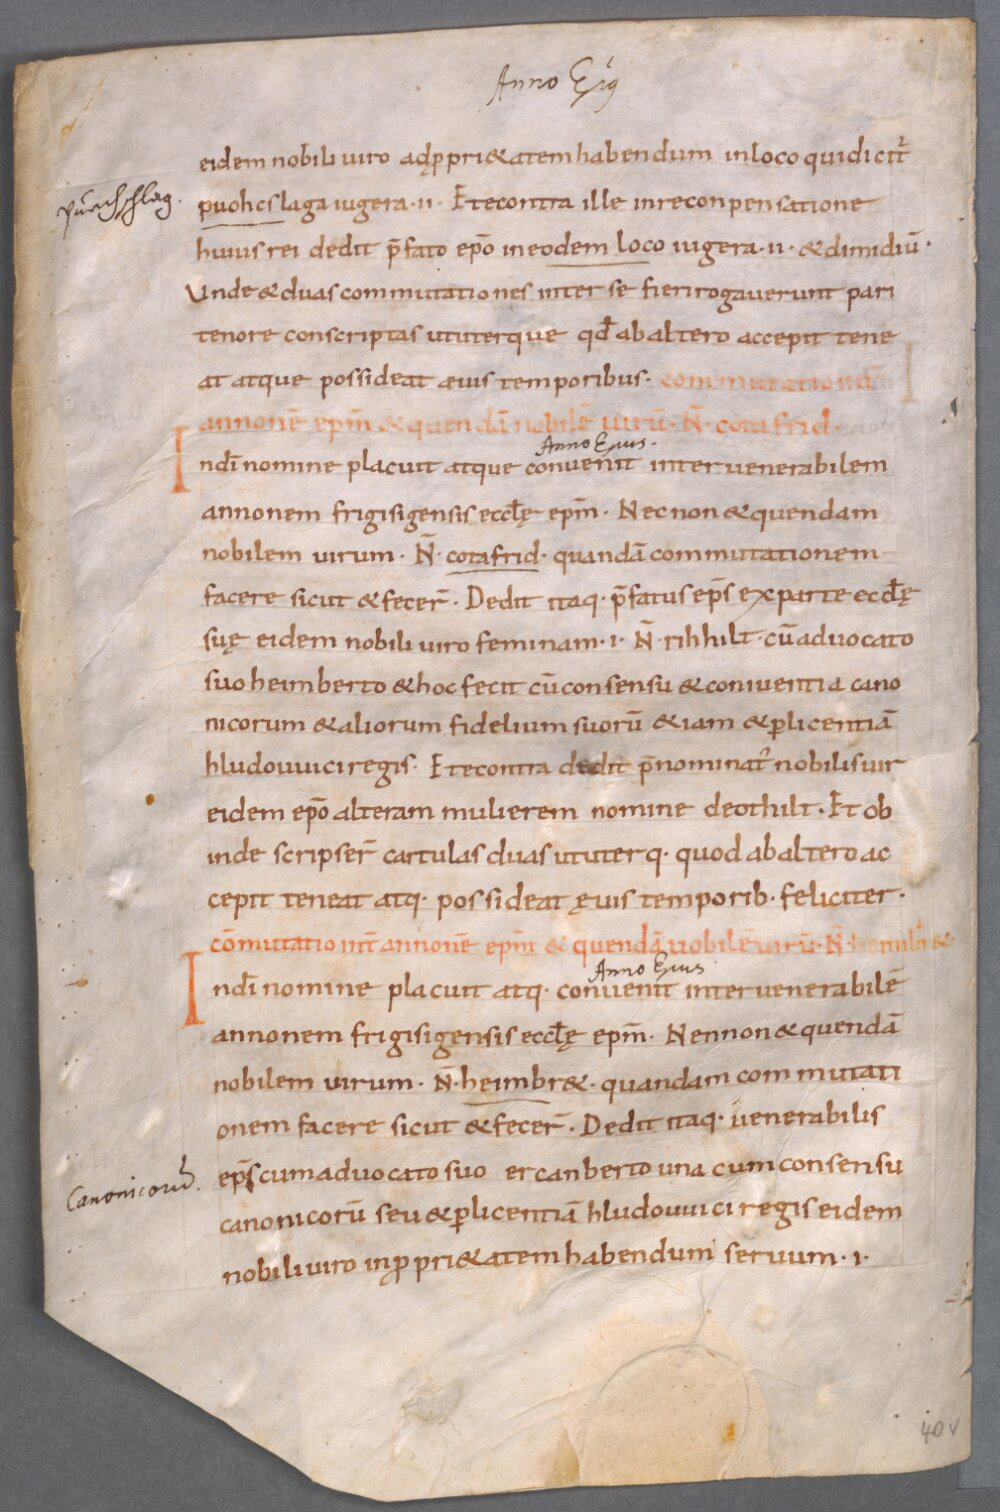 Anno Eiꝰ
eidem nobili uiro adp̱pri&atem habendum in loco qui dicit̄
puohcslaga iugera · ii · Et econtra ille in reconpensatione
purchschlag.
huius rei dedit p̄fato ep̄o in eodem loco iugera · ii · & dimidiū ·
Unde & duas commutationes inter se fieri rogauerunt pari
tenore conscriptas ut uterque qđ ab altero accepit tene
at atque possideat æuis temporibus · commutatio int̄
annonē ep̄m & quendā nobilē uirū · N̄ · cotafrid ·
Anno Ejus.
In dī nomine placuit atque conuenit inter uenerabilem
annonem frigisigensis eccłę ep̄m · Necnon & quendam
nobilem uirum · N̄ · cotafrid · quandā commutationem
facere sicut & fecer̄ · Dedit itaq · p̄fatus ep̄s ex parte eccłę
suę eidem nobili uiro feminam · i · N̄ · rihhilt · cū aduocato
suo heimberto & hoc fecit cū consensu & coniuentia cano
nicorum & aliorum fidelium suorū &iam & ꝑ licentiā
hludouuici regis · Et econtra dedit p̄nominat᾽ nobilis uir
eidem ep̄o alteram mulierem nomine deothilt · Et ob
inde scripser̄ cartulas duas ut uterq · quod ab altero ac
cepit teneat atq · possideat ęuis temporib · feliciter ·
cōmutatio int̄ annonē ep̄m & quendā nobilē uirū · N̄ · heimbr&
Anno Ejus
In dī nomine placuit atq · conuenit inter uenerabilē
annonem frigisigensis eccłę ep̄m · Nennon & quendā
nobilem uirum · N̄ · heimbr& · quandam commutati
onem facere sicut & fecer̄ · Dedit itaq · uenerabilis
ep̄s cum aduocato suo ercanberto una cum consensu
Canonicorū.
canonicorū seu & ꝑ licentiā hludouuici regis eidem
nobili uiro in p̱pri&atem habendum seruum · i ·
40v